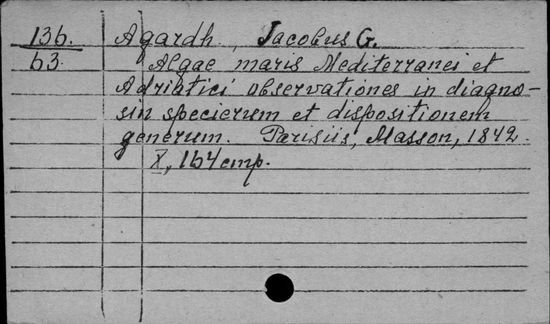 136. Agardh, Jacobus G.
63. Algae maris Mediterranei et
Adriatici observationes in diagno-
sin specierum et dispositionem
generum. Parisiis, Masson, 1842.
X, 164 стр.